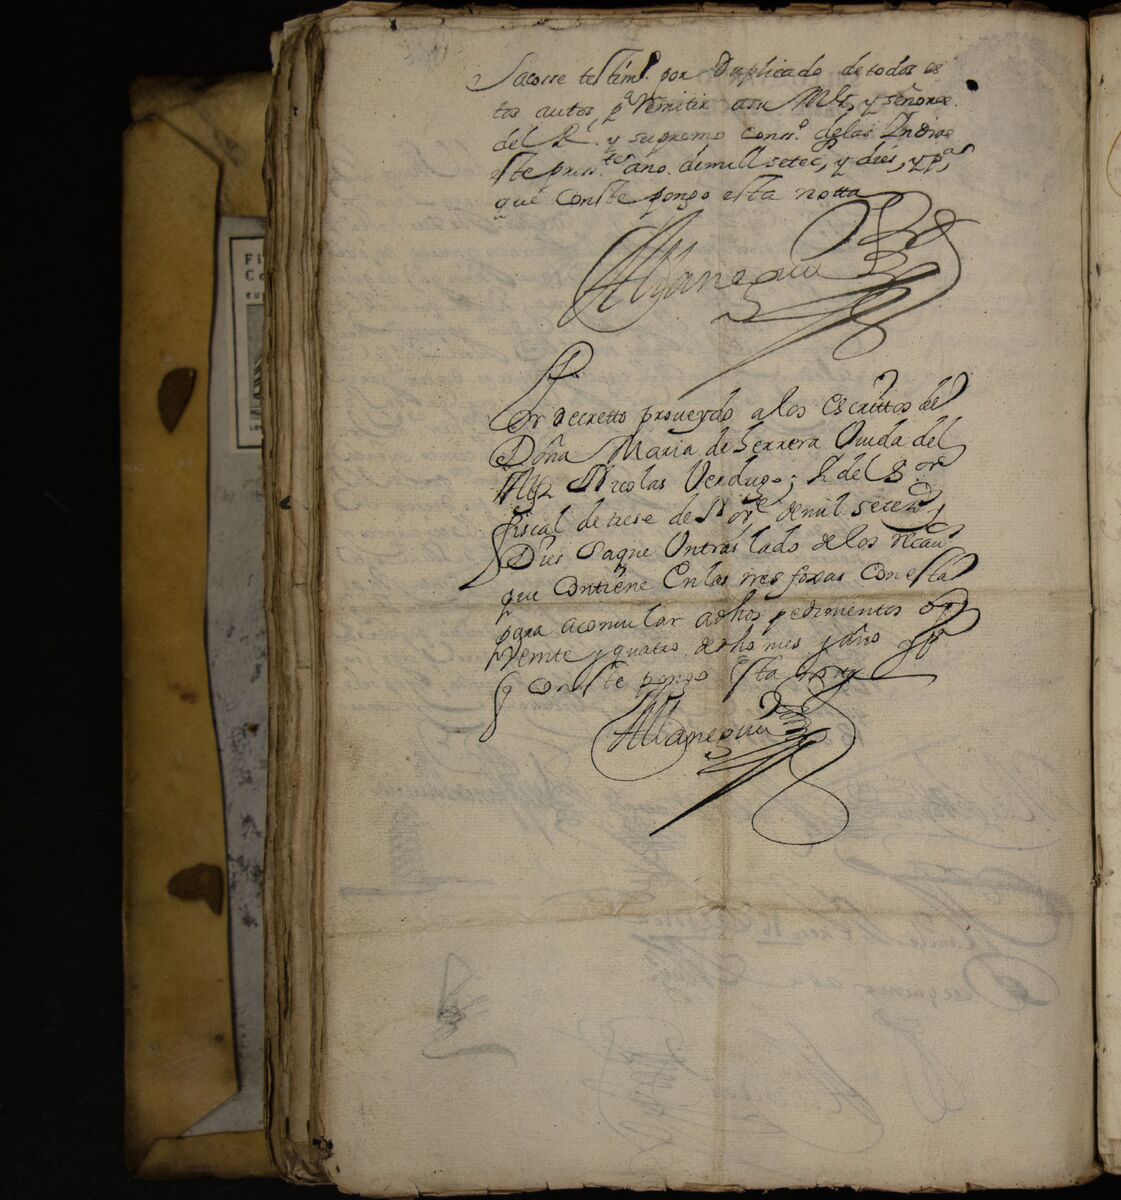 Sacose testim.º por Duplicado de todos es
tos autos, p.ª Remitir a su Mg.d, y señores
del R.l y supremo cons.º de las Indias
este press.te año de mill setec.s, y dies, y p.ª
que conste pongo esta notta
Por decretto proueydo a los escrittos de
Doña Maria de herrera Viuda del
Nicolas Verdugo; y del S.or
fiscal de trese de de mil setez.s
Dies Saque Un traslado de los recau.s
que contiene En las tres foxas con esta
para acomular a dhos pedimentos oy
Veinte y quatro de dho mes y año y p.ª
q conste pongo esta nota